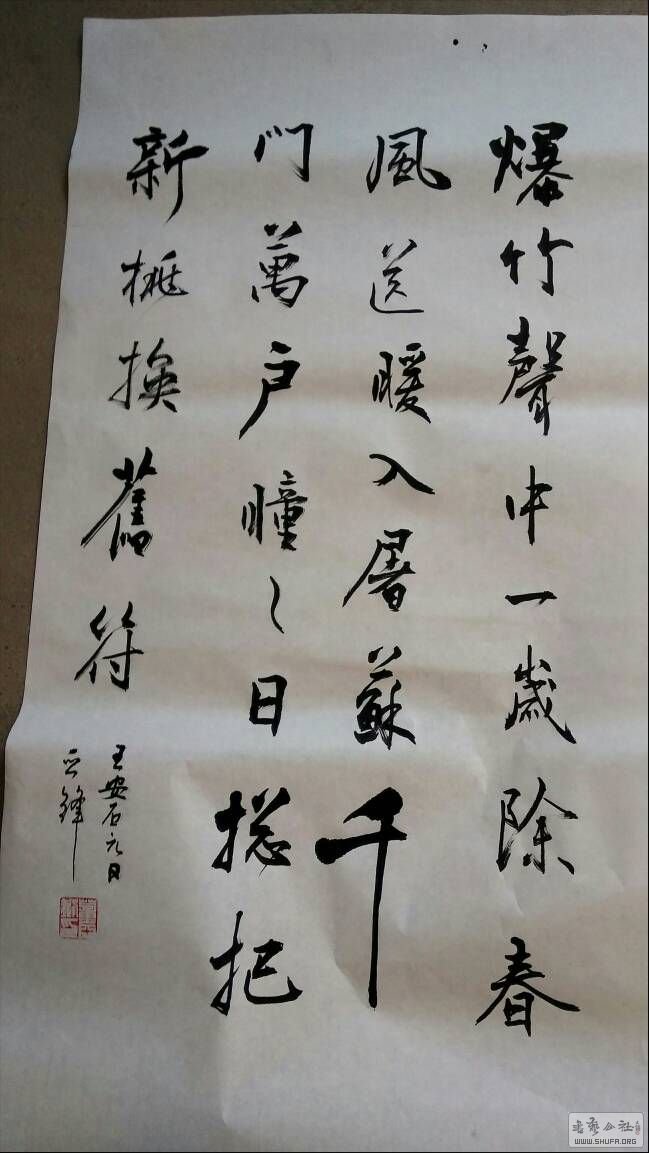 爆竹聲中一歲除春
風送暖入屠蘇千
門萬户曈〻日捴把
新桃換舊符
王安石元日
之鋒
书艺公社
WWW.SHUFA.ORG